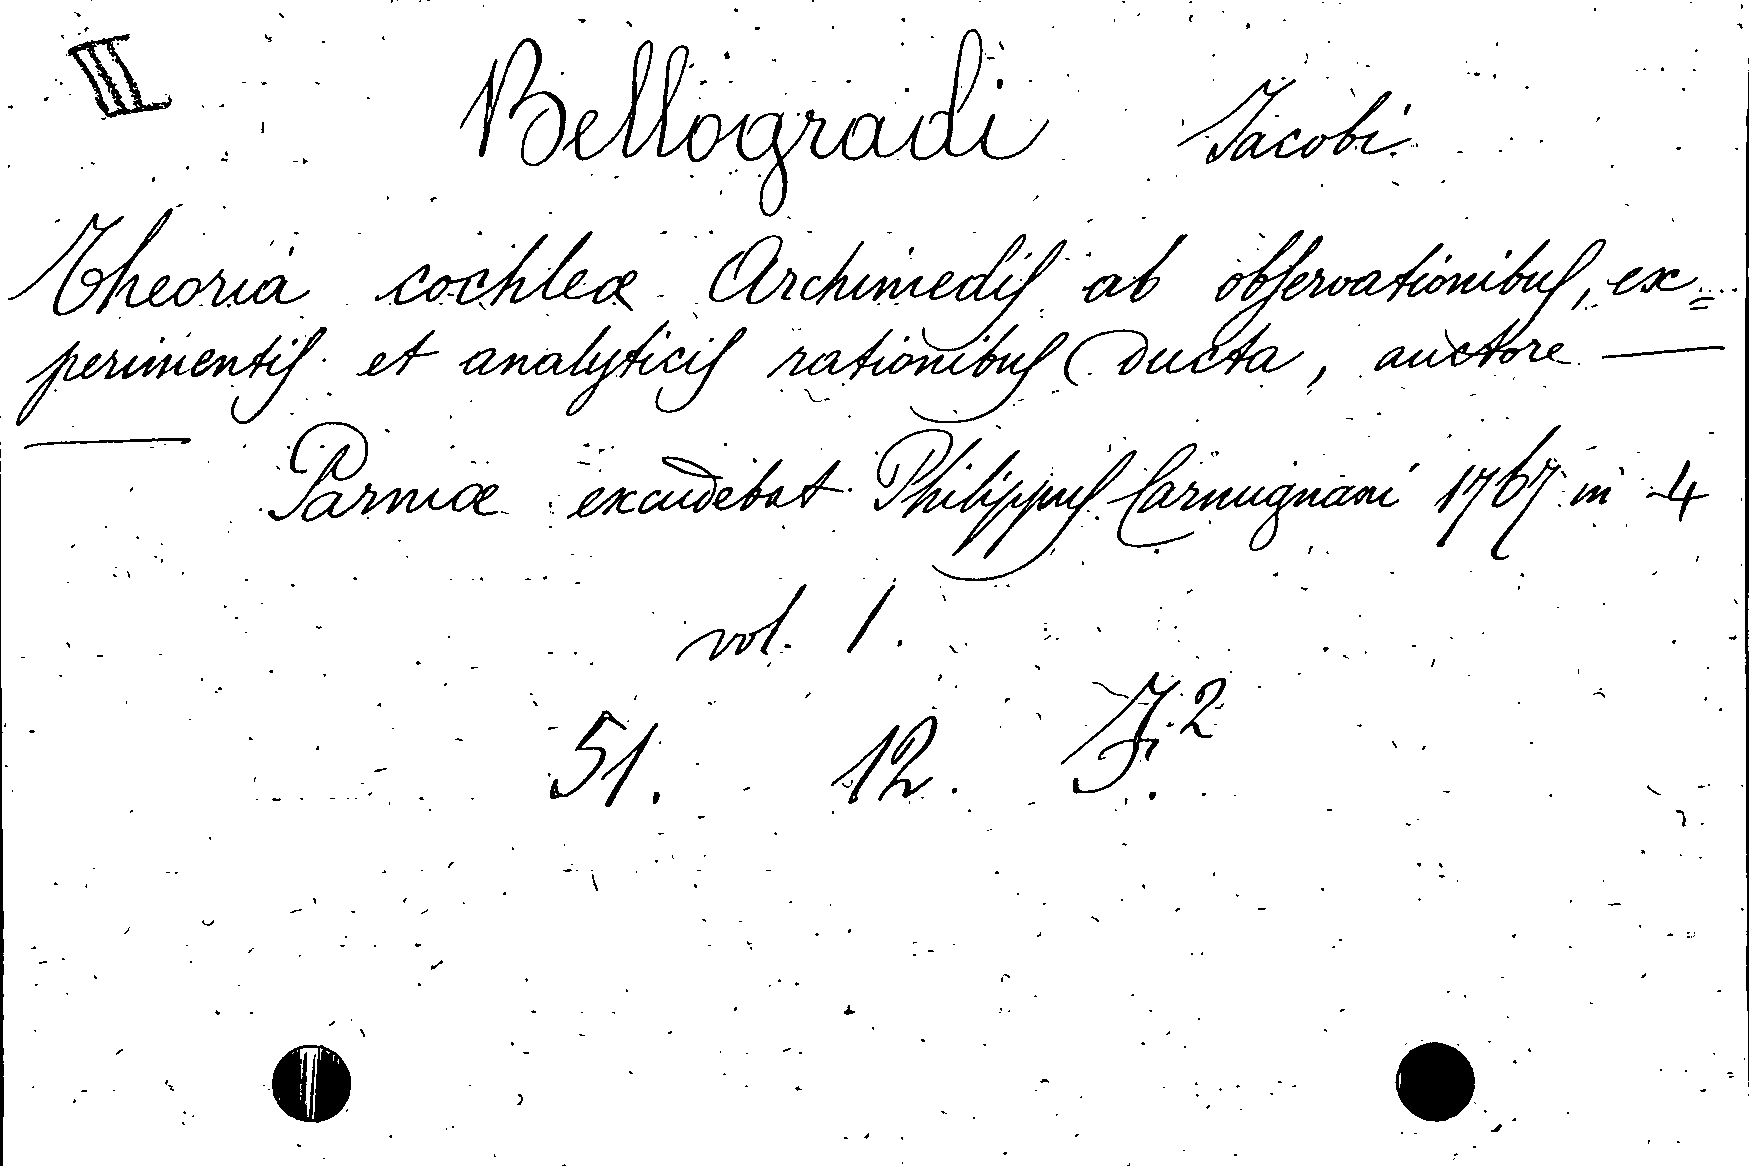 III
Bellogradi Jacobi
Theoria cochleæ Archimedis ab observationibus, ex=
perimentis et analyticis rationibus ducta, auctore —
— Parmæ excudebat Philippus Carmignani 1767 in 4
vol. 1.
51. 12. F.2